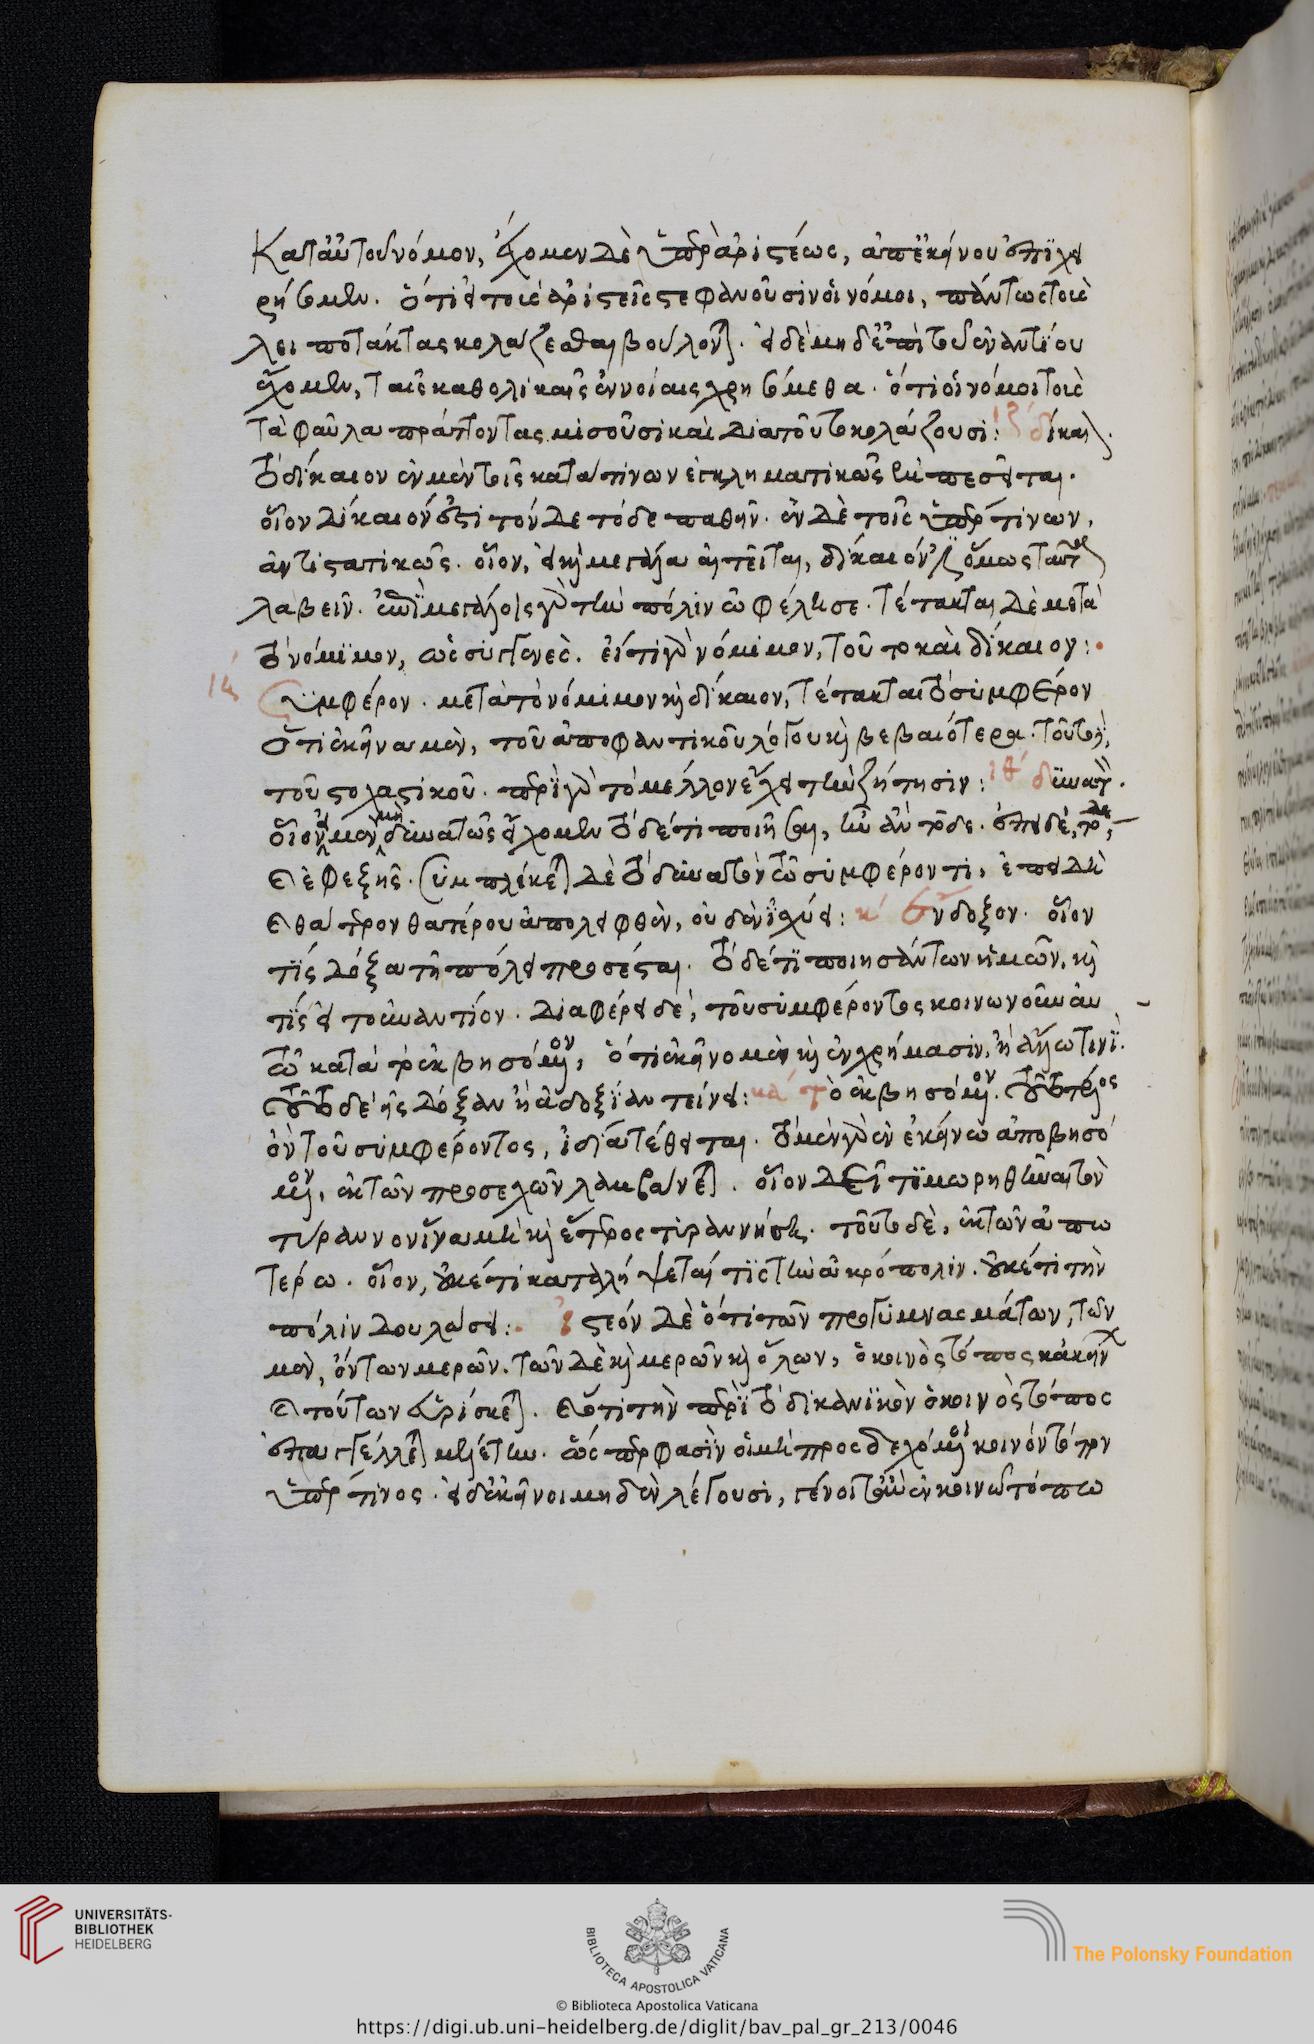 κατ' αὐτοῦ νόμον, ἔχομεν δὲ ὑπὲρ ἀριστέως, ἀπ' ἐκείνου ἐπιχει
ρήσομεν. ὅτι εἰ τοὺς ἀριστεῖς στεφανοῦσιν οἱ νόμοι, πάντως τοὺς
λειποτάκτας κολάζεσθαι βούλονται. εἰ δὲ μηδὲ ἐπὶ τοῦ ἐναντίου
ἔχομεν, ταῖς καθολικαῖς ἐννοίαις χρησόμεθα. ὅτι οἱ νόμοι τοὺς
τὰ φαῦλα πράττοντας μισοῦσι καὶ διὰ τοῦτο κολάζουσι: ιζ δίκαι
τὸ δίκαιον ἐν μὲν τοῖς κατά τινων ἐγκληματικῶς ἐμπεσεῖται.
οἷον δίκαιόν ἐστι τόνδε τόδε παθεῖν. ἐν δὲ τοῖς ὑπέρ τινων,
ἀντιστατικῶς. οἷον, εἰ καὶ μεγάλα αἰτεῖται, δίκαιόν ἐστιν ὅμως ταῦτα
λαβεῖν. ἐπὶ μεγάλοις γὰρ τὴν πόλιν ὠφέλησε. τέτακται δὲ μετὰ
τὸ νόμιμον, ὡς συγγενές. εἴ τι γὰρ νόμιμον, τοῦτο καὶ δίκαιον:
ιη
Συμφέρον. μετὰ τὸ νόμιμον καὶ δίκαιον, τέτακται τὸ συμφέρον
ὅτι ἐκεῖνα μὲν, τοῦ ἀποφαντικοῦ λόγου καὶ βεβαιότερα. τοῦτο δὲ,
τοῦ στοχαστικοῦ. περὶ γὰρ τὸ μέλλον ἔχει τὴν ζήτησιν: ιθ δυνατόν.
οἷον εἰ μὲν μὴ δυνατῶς ἔχομεν τὸ δέ τι ποιῆσαι, ἦν ἂν τόδε. ἐπεὶ δὲ, τόδε,
καὶ ἐφεξῆς. συμπλέκεται δὲ τὸ δυνατὸν τῷ συμφέροντι, ἐπειδὴ
καὶ θάτερον θατέρου ἀπολειφθὲν, οὐδὲν ἰσχύει: κ Ἔνδοξον. οἷον
τίς δόξα τῇ πόλει προσέσται. τὸ δέ τι ποιησάντων ἡμῶν, καὶ
τίς εἰ τοὐναντίον. διαφέρει δὲ, τοῦ συμφέροντος κοινωνοῦν ἂν
τῷ κατὰ τὸ ἐκβησόμενον, ὅτι ἐκεῖνο μὲν καὶ ἐν χρήμασιν, ἢ ἄλλῳ τινί.
τοῦτο δὲ εἰς δόξαν ἢ ἀδοξίαν τείνει: κα τὸ ἐκβησόμενον. τοῦτο μέρος
ὂν τοῦ συμφέροντος, ἰδίᾳ τέθειται. τὸ μὲν γὰρ ἐν ἐκείνῳ ἀποβησό
μενον, ἐκ τῶν προσεχῶν λαμβάνεται. οἷον δεῖ τιμωρηθῆναι τὸν
τύραννον ἵνα μὴ καὶ ἕτερος τυραννήσῃ. τοῦτο δὲ, ἐκ τῶν ἀπω
τέρω. οἷον, οὐκέτι καταλήψεταί τις τὴν ἀκρόπολιν. οὐκέτι τὴν
πόλιν δουλώσει: ἰστέον δὲ ὅτι τῶν προγυμνασμάτων, τῶν
μὲν, ὄντων μερῶν. τῶν δὲ καὶ μερῶν καὶ ὅλων, ὁ κοινὸς τόπος κἀκεῖν
καὶ τούτων εὑρίσκεται. καὶ ὅτι τὴν περὶ τὸ δικανικὸν ὁ κοινὸς τόπος
ἐπαγγέλλεται μελέτην. ὥσπερ φασὶν οἱ μὴ προσδεχόμενοι κοινὸν τόπον
ὑπέρ τινος. εἰ δὲ ἐκεῖνοι μηδὲν λέγουσι, γένοιτο ἂν ἐν κοινῷ τόπῳ
UNIVERSITÄTS-
BIBLIOTHEK
HEIDELBERG
BIBLIOTECA APOSTOLICA VATICANA
The Polonsky Foundation
© Biblioteca Apostolica Vaticana
https://digi.ub.uni-heidelberg.de/diglit/bav_pal_gr_213/0046